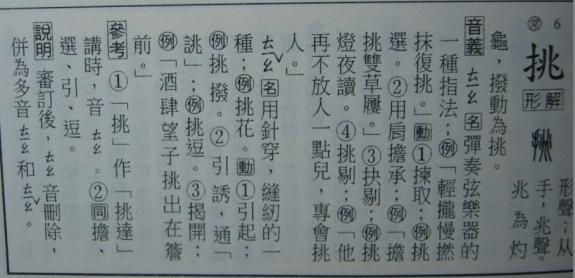 6
常
挑 形解 形聲;从
手,兆聲。
兆為灼
龜,撥動為挑。
音義 ㄊㄧㄠ 名彈奏弦樂器的
一種指法;例「輕攏慢撚
抹復挑。」動①揀取;例挑
選。②用肩擔承;例「擔
挑雙草屨。」③抉剔;例挑
燈夜讀。④挑剔;例「他
再不放人一點兒,專會挑
人。」
ㄊㄧㄠˇ 名用針穿,縫紉的一
種;例挑花。動①引起;
例挑撥。②引誘,通「
誂」;例挑逗。③揭開;
例「酒肆望子挑出在簷
前。」
參考 ①「挑」作「挑達」
講時,音ㄊㄠ。②同擔、
選、引、逗。
說明 審訂後,ㄊㄠ音刪除,
併為多音ㄊㄧㄠ和ㄊㄧㄠˇ。